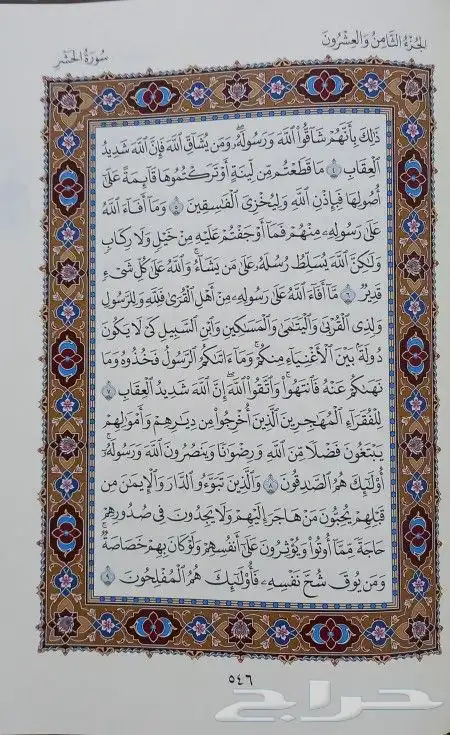 الجُزْءُ الثَّامِنُ وَالعِشْرُونَ
سُورَةُ الحَشْرِ
ذَٰلِكَ بِأَنَّهُمْ شَاقُّوا۟ ٱللَّهَ وَرَسُولَهُۥ وَمَن يُشَاقِّ ٱللَّهَ فَإِنَّ ٱللَّهَ شَدِيدُ
ٱلْعِقَابِ ٤ مَا قَطَعْتُم مِّن لِّينَةٍ أَوْ تَرَكْتُمُوهَا قَآئِمَةً عَلَىٰٓ
أُصُولِهَا فَبِإِذْنِ ٱللَّهِ وَلِيُخْزِىَ ٱلْفَٰسِقِينَ ٥ وَمَآ أَفَآءَ ٱللَّهُ
عَلَىٰ رَسُولِهِۦ مِنْهُمْ فَمَآ أَوْجَفْتُمْ عَلَيْهِ مِنْ خَيْلٍ وَلَا رِكَابٍ
وَلَٰكِنَّ ٱللَّهَ يُسَلِّطُ رُسُلَهُۥ عَلَىٰ مَن يَشَآءُ وَٱللَّهُ عَلَىٰ كُلِّ شَىْءٍ
قَدِيرٌ ٦ مَّآ أَفَآءَ ٱللَّهُ عَلَىٰ رَسُولِهِۦ مِنْ أَهْلِ ٱلْقُرَىٰ فَلِلَّهِ وَلِلرَّسُولِ
وَلِذِى ٱلْقُرْبَىٰ وَٱلْيَتَٰمَىٰ وَٱلْمَسَٰكِينِ وَٱبْنِ ٱلسَّبِيلِ كَىْ لَا يَكُونَ
دُولَةًۢ بَيْنَ ٱلْأَغْنِيَآءِ مِنكُمْ وَمَآ ءَاتَىٰكُمُ ٱلرَّسُولُ فَخُذُوهُ وَمَا
نَهَىٰكُمْ عَنْهُ فَٱنتَهُوا۟ وَٱتَّقُوا۟ ٱللَّهَ إِنَّ ٱللَّهَ شَدِيدُ ٱلْعِقَابِ ٧
لِلْفُقَرَآءِ ٱلْمُهَٰجِرِينَ ٱلَّذِينَ أُخْرِجُوا۟ مِن دِيَٰرِهِمْ وَأَمْوَٰلِهِمْ
يَبْتَغُونَ فَضْلًا مِّنَ ٱللَّهِ وَرِضْوَٰنًا وَيَنصُرُونَ ٱللَّهَ وَرَسُولَهُۥٓ
أُو۟لَٰٓئِكَ هُمُ ٱلصَّٰدِقُونَ ٨ وَٱلَّذِينَ تَبَوَّءُو ٱلدَّارَ وَٱلْإِيمَٰنَ مِن
قَبْلِهِمْ يُحِبُّونَ مَنْ هَاجَرَ إِلَيْهِمْ وَلَا يَجِدُونَ فِى صُدُورِهِمْ
حَاجَةً مِّمَّآ أُوتُوا۟ وَيُؤْثِرُونَ عَلَىٰٓ أَنفُسِهِمْ وَلَوْ كَانَ بِهِمْ خَصَاصَةٌ
وَمَن يُوقَ شُحَّ نَفْسِهِۦ فَأُو۟لَٰٓئِكَ هُمُ ٱلْمُفْلِحُونَ ٩
٥٤٦
حراج